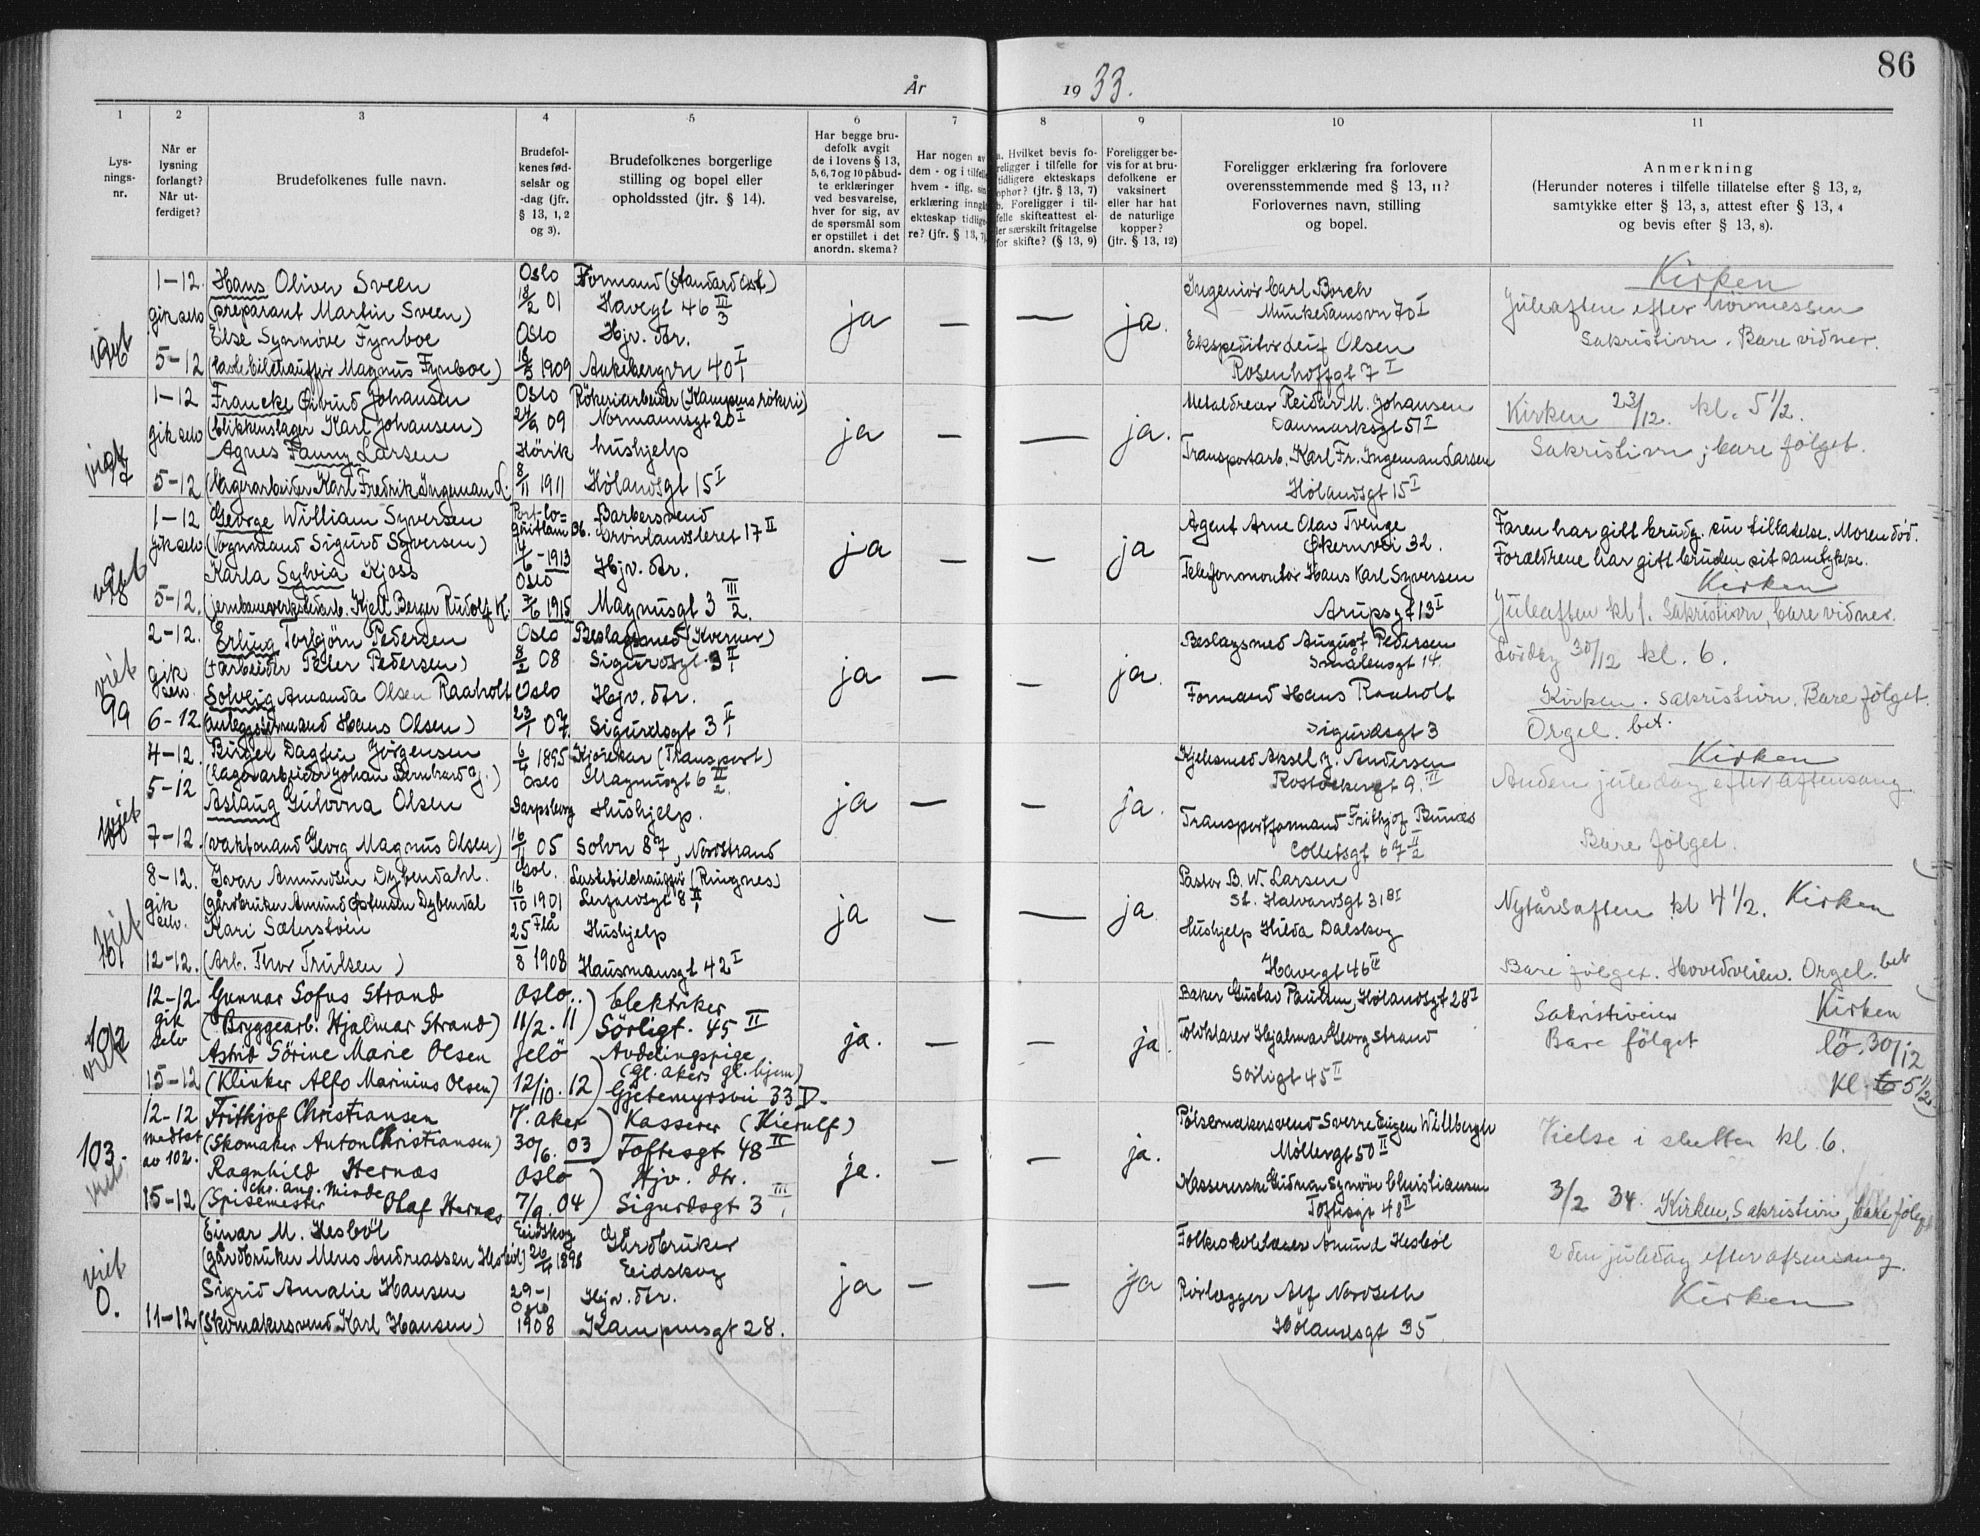 86
År 1933.
1 2 3 4 5 6 7 8 9 10 11
Lysningsnr.
Når er lysning forlangt? Når utferdiget?
Brudefolkenes fulle navn.
Brudefolkenes fødselsår og -dag (jfr. § 13, 1, 2 og 3).
Brudefolkenes borgerlige stilling og bopel eller opholdssted (jfr. § 14).
Har begge brudefolk avgit de i lovens § 13, 5, 6, 7 og 10 påbudte erklæringer ved besvarelse, hver for sig, av de spørsmål som er opstillet i det anordn. skema?
Har nogen av dem - og i tilfelle hvem - iflg. sin erklæring inngått ekteskap tidligere? (jfr. § 13, 7)
a. Hvilket bevis foreligger i tilfelle for tidligere ekteskaps ophør? (jfr. § 13, 7)
b. Foreligger i tilfelle skifteattest eller særskilt fritagelse for skifte? (§ 13, 9)
Foreligger bevis for at brudefolkene er vaksinert eller har hat de naturlige kopper? (jfr. § 13, 12)
Foreligger erklæring fra forlovere overensstemmende med § 13, 11? Forlovernes navn, stilling og bopel.
Anmerkning (Herunder noteres i tilfelle tillatelse efter § 13, 2, samtykke efter § 13, 3, attest efter § 13, 4 og bevis efter § 13, 8).
viet
1-12 Hans Oliver Sveen Oslo Formand (Standard
gik selv (preparant Martin Sveen) 18/2 01 Havegt 46 III/3 ja — — ja.
Else Synnøve Fynboe Oslo Hjv. dtr.
5-12 (lastebilchauffør Magnus Fynboe) 1909 Ankerbergvn 40 I
Ingeniør Carl Borch
Munkedamsvn 70 I
Ekspeditør Olsen
Rosenhoffgt 7 I
Kirken
Juleaften efter
Sakristivn. Bare vidner.
viet
1-12 Francke Øivind Johansen Oslo Rökeriarbeider (Kampens rökeri)
gik selv (blikkenslager Karl Johansen) 24/9 09 Normannsgt 20 I ja — — ja.
Agnes Fanny Larsen Hövik hushjelp
5-12 (lagerarbeider Karl Fredrik Ingeman L. 8/11 1911 Hölandsgt 15 I
Metaldreier Reidar M. Johansen
Danmarksgt 51 I
Transportarb. Karl Fr. Ingeman Larsen
Hölandsgt 15 I
Kirken 23/12. kl. 5 1/2.
Sakristivn; bare følget.
viet
1-12 George William Syversen Barbersvend
gik selv (Vognmand Sigurd Syversen) 1913 Grönlandsleret 17 II ja — — ja
Karla Sylvia Kjoss Oslo Hjv. dtr.
5-12. Kjell Berger Rudolf K. 7/6 1915 Magnusgt 3 III/2.
Agent Arne Olav Tvenge
Økernvei 32.
Telefonmontör Hans Karl Syversen
Arupsgt 13 I
Faren har gitt brudg. sin tilladelse. Moren död.
Foreldrene har gitt bruden sit samtykke.
Kirken
Juleaften kl 1. Sakristivn, bare vidner.
viet
99
2-12. Erling Torbjørn Pedersen Oslo Beslagsmed (Kverner)
gik selv. († arbeider Peter Pedersen) 8/2 08 Sigurdsgt. 3 II ja — — ja.
Solveig Amanda Olsen Raaholt Oslo Hjv. dtr.
6-12. (anleggsformand Hans Olsen) 23/1 07 Sigurdsgt 3 II
Beslagsmed August Pedersen
Smålensgt 14.
Formand Hans Raaholt
Sigurdsgt 3
Lördag 30/12 kl. 6.
Kirken. Sakristivn. Bare følget.
Orgel. bet.
viet
4-12. Birger Dagfin Jørgensen 6/4 1895 Kjörekar (Transport)
5-12 (Lagerarbeider Johan Bernhard J.) Oslo Magnusgt 6 II/2. ja — — ja.
Aslaug Gulovna Olsen Sarpsborg Hushjelp.
7-12. (vaktmand Georg Magnus Olsen) 16/11 05 Solvn 87, Nordstrand
Kjelesmed Aksel J. Andersen
9. III
Transportformand Frithjof Bunæs
Colletsgt 67 II/2
Kirken
Anden juledag efter aftensang.
Bare følget.
viet
101
8-12. Ivar Amundsen Dybendahl. Lastebilchauffør (Ringnes)
gik selv. (gårdbruker Amund Østensen Dybendal 16/10 1901 8 II ja — — ja.
Kari Sæterstøen 25 Flå Hushjelp
12-12. (Arb. Thor Trulsen) 8 1908 Hausmansgt 42 I
Pastor B. W. Larsen
St. Halvardsgt 31 B I
Hushjelp Hilda Dalskog
Havegt 46 II
Nytårsaften kl 4 1/2. Kirken
Bare følget. Hovedveien. Orgel. bet
102
viet
12-12. Gunnar Sofus Strand Oslo. Elektriker
gik selv (Bryggearb. Hjalmar Strand) 11/2. 11 Sörligt. 45 II ja. — — ja.
Astrid Sörine Marie Olsen Jelö Avdelingspige
(gl. akers gl. hjem)
15-12 (Klinker Alfo Marinius Olsen) 12/10. 12 Gjetemyrsvei 33 D.
Baker Gustav Paulsen, Hölandsgt 28 I
Hjalmar Georg Strand
Sörligt 45 II
Sakristiveien
Bare følget
Kirken
lö. 30/12
kl. 5 1/2.
103.
viet.
12-12 Frithjof Christiansen V. aker Kasserer (Kierulf)
medtat av 102. (Skomaker Anton Christiansen) 30/6. 03 Toftesgt 48 II ja. — — ja.
Ragnhild Hernæs Oslo Hjv. dtr.
Chr. an. Minde
15-12 (Spisemester Olaf Hernæs 7/9. 04 Sigurdsgt 3 III
Pölsemakersvend Sverre Eugen Willbergh
Møllergt 50 II
Kassererske Gudrun Synöve Christiansen
Toftesgt 48 II
Vielse i slutten kl. 6.
3/2 34. Kirken, Sakristivn, bare følget
viet
0.
Einar M. Hesböl Eidskog Gårdbruker
(gårdbruker Mens Andreassen Hesböl) 26/4 1898 Eidskog ja — — ja
Sigrid Amalie Hansen 29-1 Oslo Hjv. dtr.
11-12 (Skomakersvend Karl Hansen) 1908 Kampensgt 28.
Folkeskolelærer Amund Hesböl
Rörlegger Alf Nordseth
Hölandsgt 35.
2den juledag efter aftensang.
Kirken